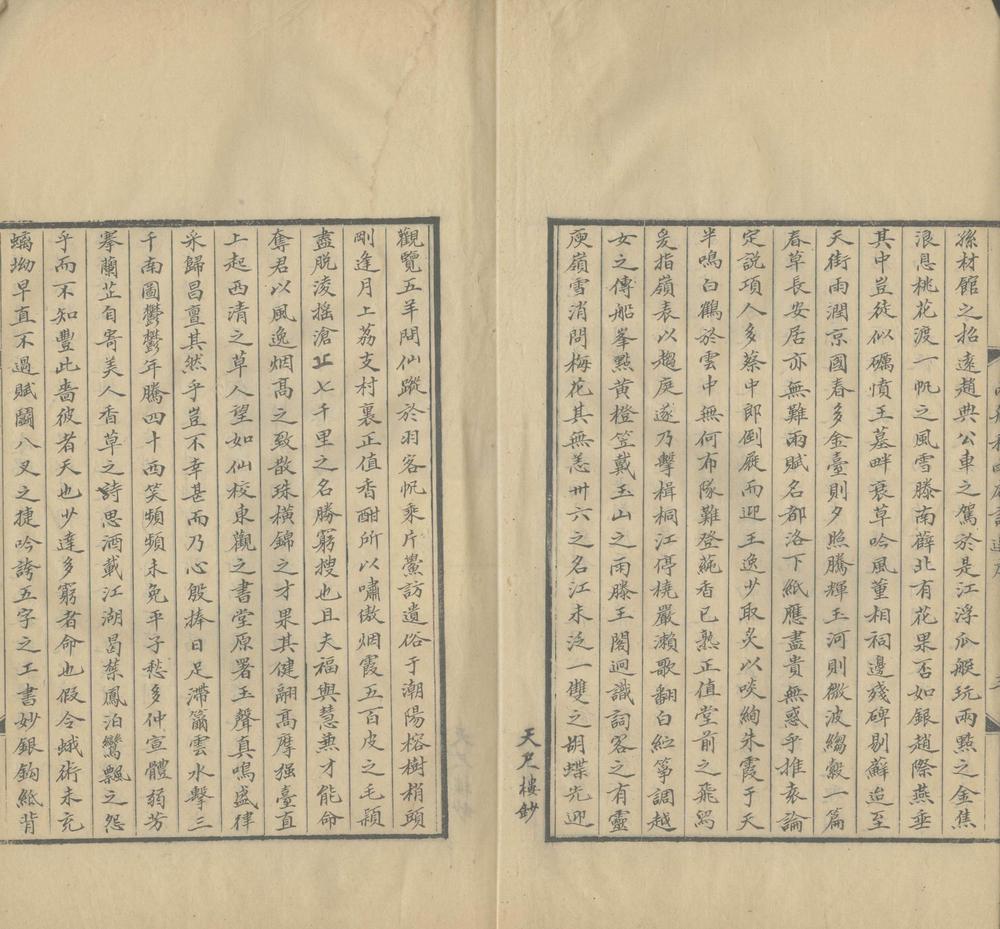 孫材館之招遠趙典公車之駕於是江浮瓜艇玩兩點之金焦
浪息桃花渡一帆之風雪滕南薛北有花果否如銀趙際燕垂
其中豈徒似礪憤王墓畔衰草吟風董相祠邊殘碑剔蘚迨至
天街雨潤京國春多金臺則夕照騰輝玉河則微波縐縠一篇
春草長安居亦無難兩賦名都洛下紙應盡貴無惑乎推袁論
定說項人多蔡中郎倒屣而迎王逸少取炙以啖絢朱霞于天
半鳴白鶴於雲中無何布隊難登蒓香已熟正值堂前之飛舄
爰指嶺表以趨庭遂乃擊楫桐江停橈嚴瀨歌翻白紵箏調越
女之傳船峯點黃橙笠戴玉山之雨滕王閣迥識詞客之有靈
庾嶺雪消問梅花其無恙卅六之名江未泛一雙之胡蝶先迎
天尺樓鈔
觀覽五羊問仙蹤於羽客帆乘片鱟訪遺俗于潮陽榕樹梢頭
剛逢月上荔支村裏正值香酣所以嘯傲烟霞五百皮之毛穎
盡脫淩搖滄止七千里之名勝窮搜也且夫福與慧兼才能命
奪君以風逸烟高之致散珠橫錦之才果其健翮高摩强臺直
上起西清之草人望如仙校東觀之書堂原署玉聲真鳴盛律
采歸昌亶其然乎豈不幸甚而乃心殷捧日足滯籋雲水擊三
千南圖鬱鬱年騰四十西笑頻頻未免平子愁多仲宣體弱芳
搴蘭芷自寄美人香草之詩思酒載江湖曷禁鳳泊鸞飄之怨
乎而不知豐此嗇彼者天也少達多窮者命也假令蛾術未充
螭坳早直不過賦鬬八叉之捷吟誇五字之工書妙銀鈎紙背